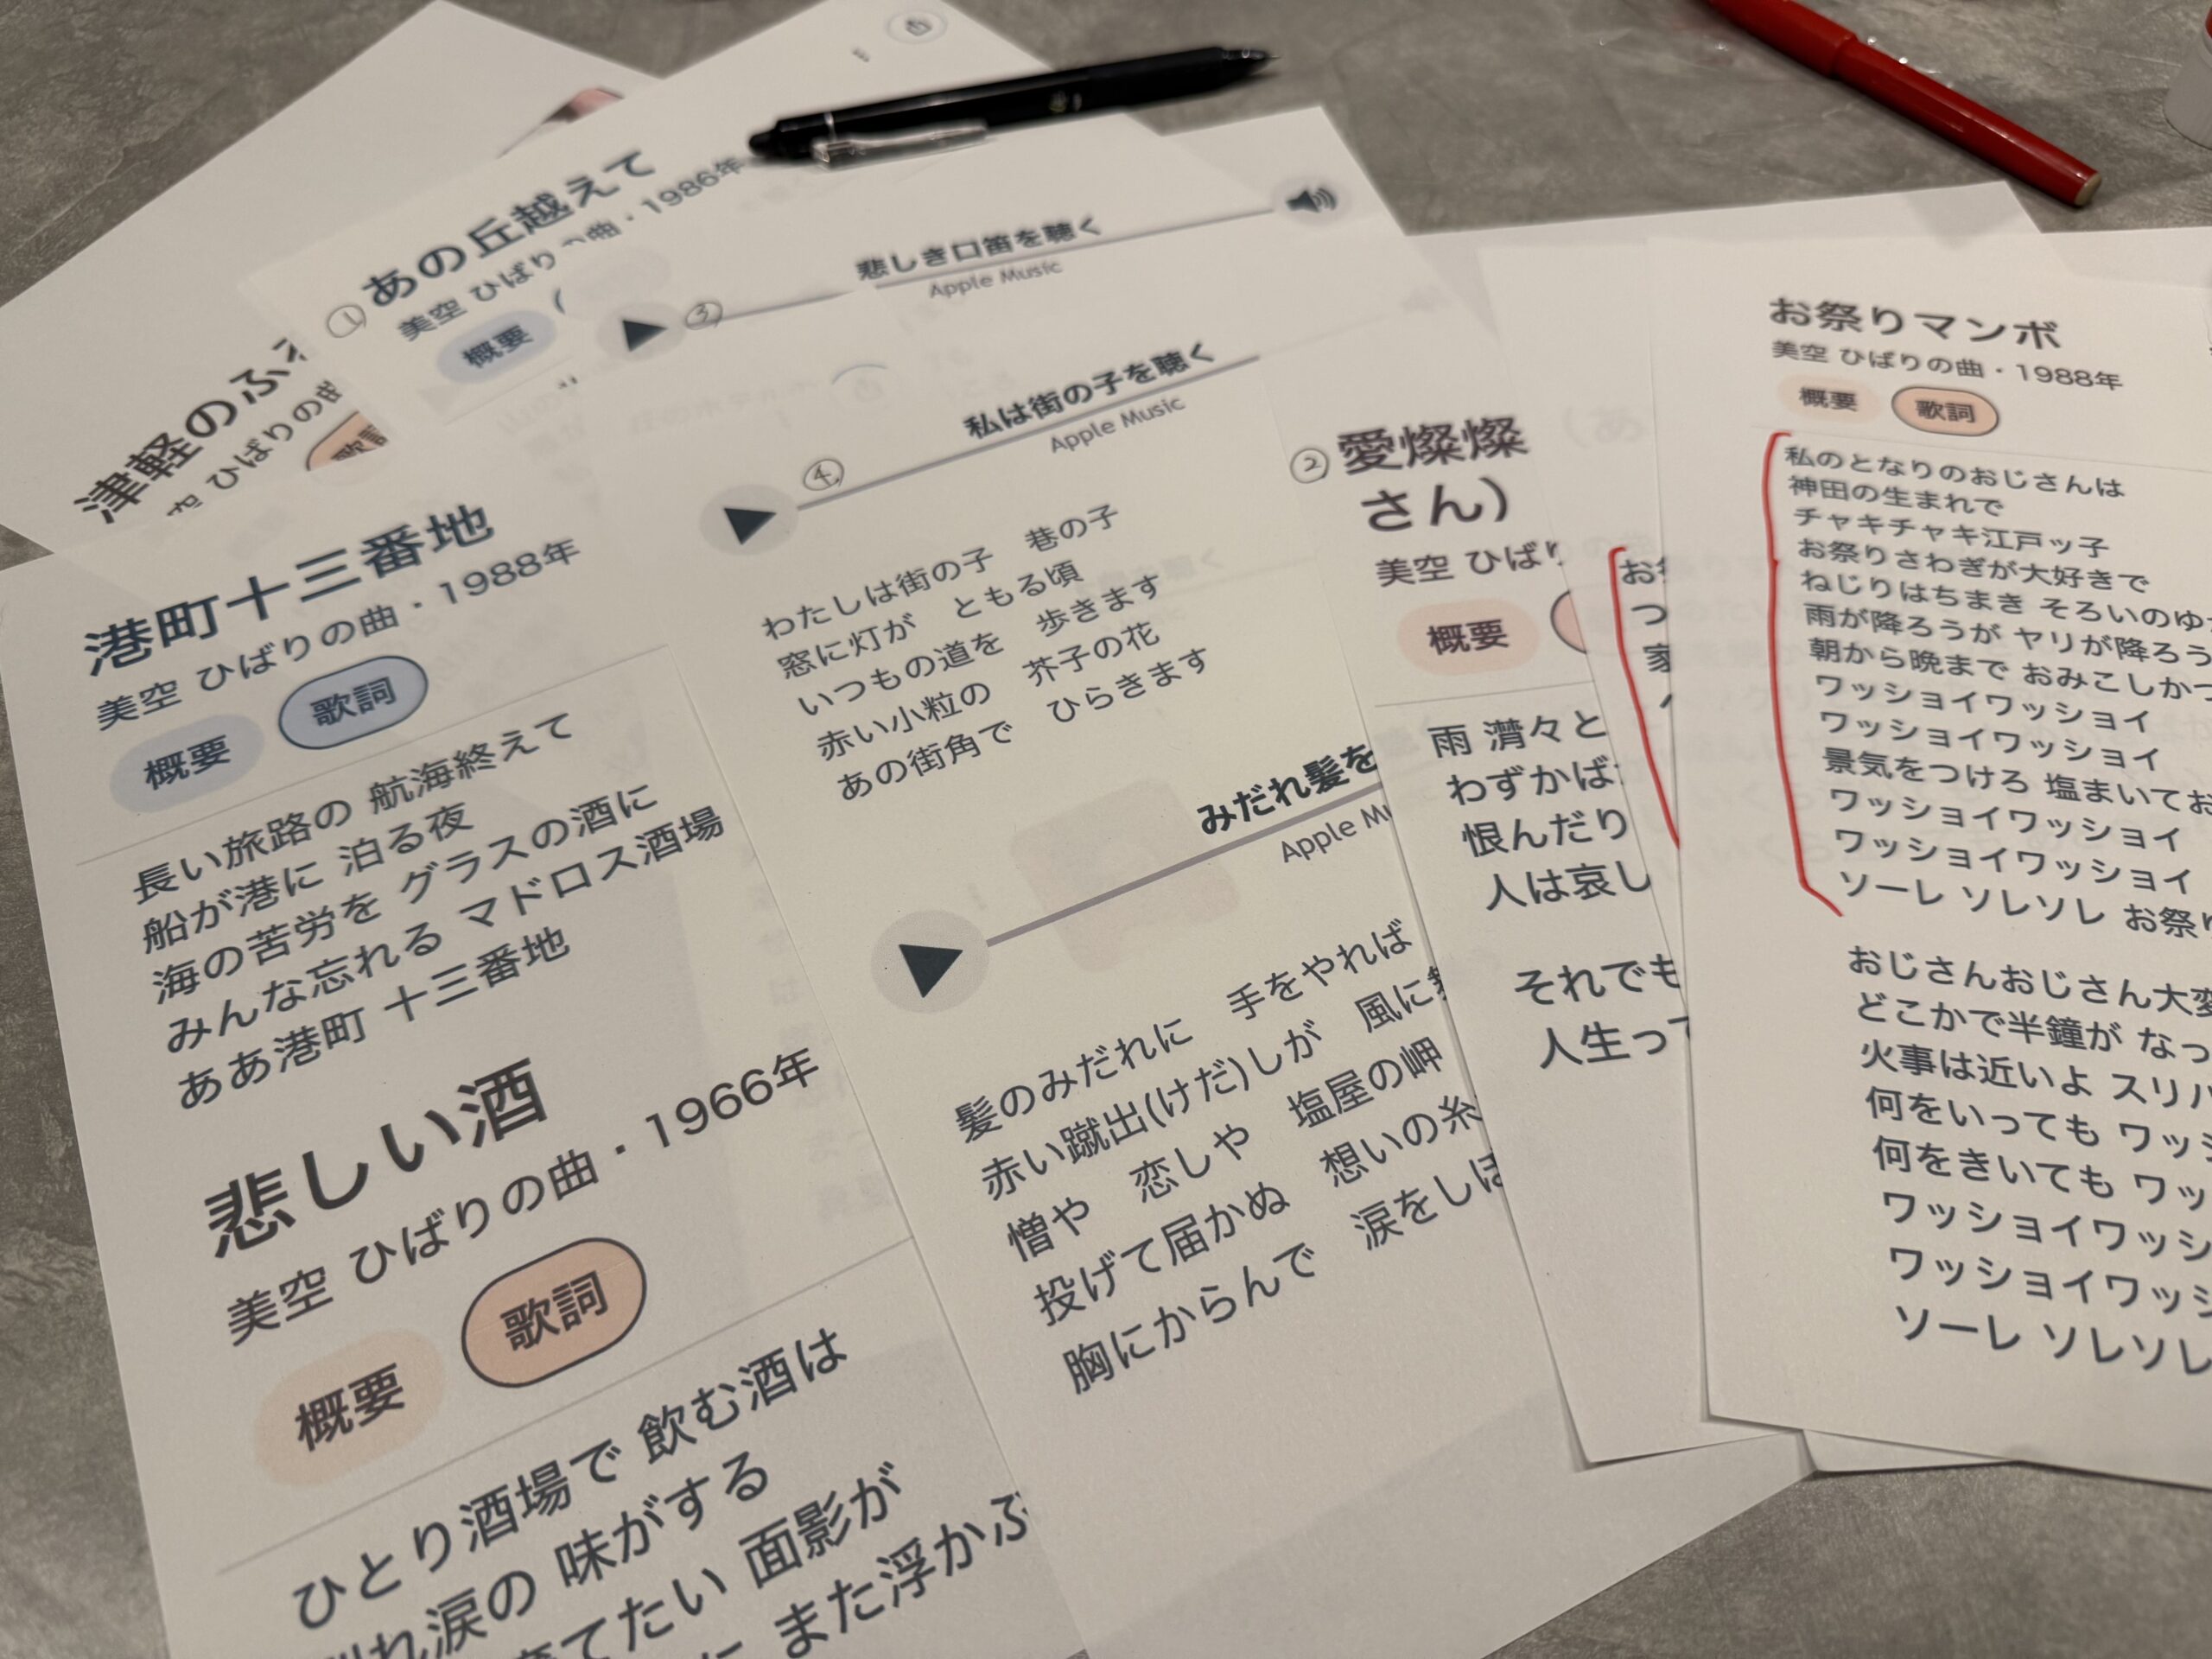 津軽のふ
ひばりの曲
歌詞
① あの丘越えて
美空 ひばりの曲・1986年
概要
悲しき口笛を聴く
Apple Music
③
私は街の子を聴く
Apple Music
④
わたしは街の子 巷の子
窓に灯が ともる頃
いつもの道を 歩きます
赤い小粒の 芥子の花
あの街角で ひらきます
みだれ髪を
Apple Mu
髪のみだれに 手をやれば
赤い蹴出(けだ)しが 風に
憎や 恋しや 塩屋の岬
投げて届かぬ 想いの糸
胸にからんで 涙をしぼ
港町十三番地
美空 ひばりの曲・1988年
概要 歌詞
長い旅路の 航海終えて
船が港に 泊る夜
海の苦労を グラスの酒に
みんな忘れる マドロス酒場
ああ港町 十三番地
悲しい酒
美空 ひばりの曲・1966年
概要 歌詞
ひとり酒場で 飲む酒は
れ涙の 味がする
てたい 面影が
また浮かぶ
② 愛燦燦
さん)
美空 ひばり
概要
雨 潸々と
わずかば
恨んだり
人は哀し
それでも
人生って
お
つ
家
お祭りマンボ
美空 ひばりの曲・1988年
概要 歌詞
私のとなりのおじさんは
神田の生まれで
チャキチャキ江戸ッ子
お祭りさわぎが大好きで
ねじりはちまき そろいのゆ
雨が降ろうが ヤリが降ろう
朝から晩まで おみこしかつ
ワッショイワッショイ
ワッショイワッショイ
景気をつけろ 塩まいてお
ワッショイワッショイ
ワッショイワッショイ
ソーレ ソレソレ お祭り
おじさんおじさん大変
どこかで半鐘が なっ
火事は近いよ スリバ
何をいっても ワッシ
何をきいても ワッ
ワッショイワッシ
ワッショイワッシ
ソーレ ソレソレ